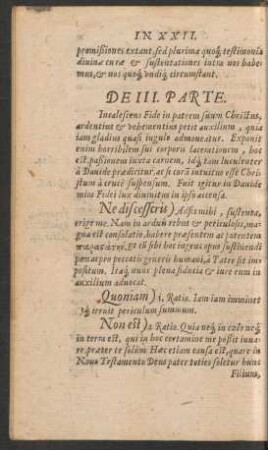 IN XXII.
promißiones extant, sed plurima quoq; testimonia
diuinæ curæ & sustentationes intra nos habe
mus, & nos quoq; vndiq; circumstant.
DE III. PARTE.
Incalescens Fide in patrem suum Christus,
ardentius & vehementius petit auxilium, quia
iam gladius quasi iugulo admoueatur. Exponit
enim horribilem sui corporis lacerationem, hoc
est, paßionem iuxta carnem, idq; tam luculenter
à Dauide prædicitur, ac si corā intuitus esset Chri
stum à cruce suspensum. Fuit igitur in Dauide
mira Fidei lux diuinitus in ipso accensa.
Ne discesseris) Adsis mihi, sustenta,
erige me. Nam in arduis rebus & periculosis, ma
gna est consolatio, habere præsentem ac patentem
et tibi hoc ingens opus sustinendi
pœnas pro peccatis generis humani, à Patre sit im
positum. Itaq; nunc plena fiducia & iure eum in
auxilium aduocat.
Quoniam) 1. Ratio. Iam iam imminet
& irruit periculum summum.
Non est) 2 Ratio. Quia neq; in cœlo neq;
in terra est, qui in hoc certamine me poßit iuua-
re, præter te solùm Hæc etiam causa est, quare in
Nouo Testamento Deus pater toties soletur hunc
Filium,